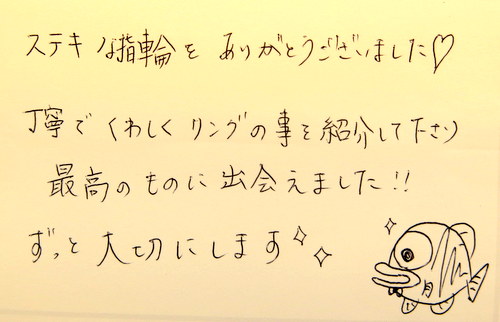 ステキな指輪を ありがとうございました♡
丁寧で くわしく リングの事を紹介して下さり
最高のものに出会えました!!
ずっと大切にします✧✧
月